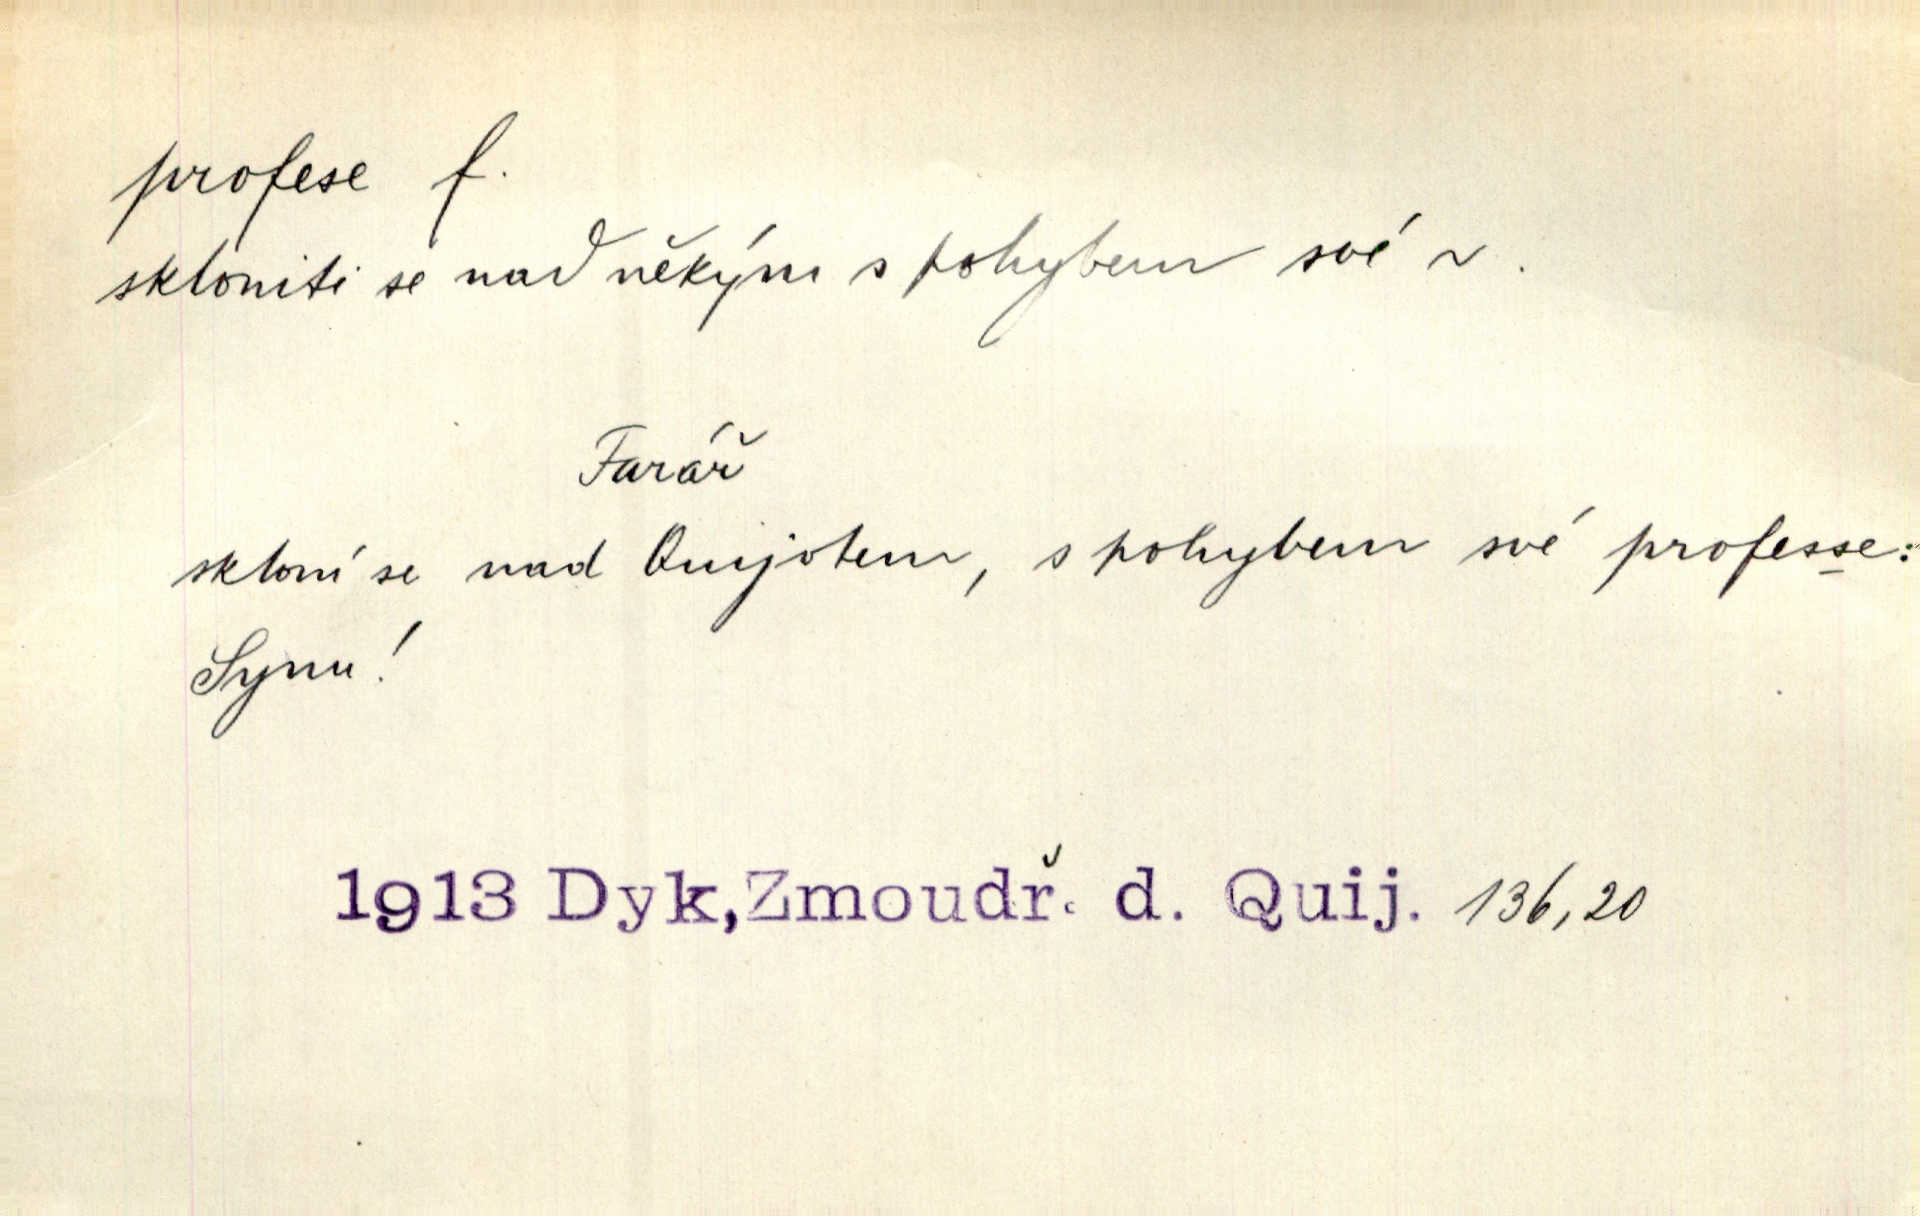 profese f.
skloniti se nad někým s pohybem své ~.
Farář
skloní se nad Quijotem, s pohybem své professe:
Synu!
1913 Dyk, Zmoudř. d. Quij. 136,20